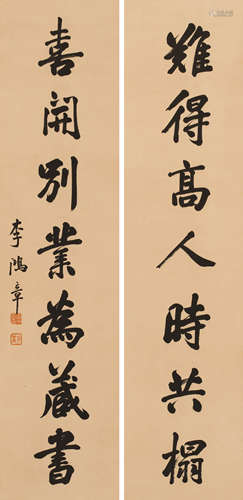 難得高人時共榻
喜開別業為藏書
李鴻章